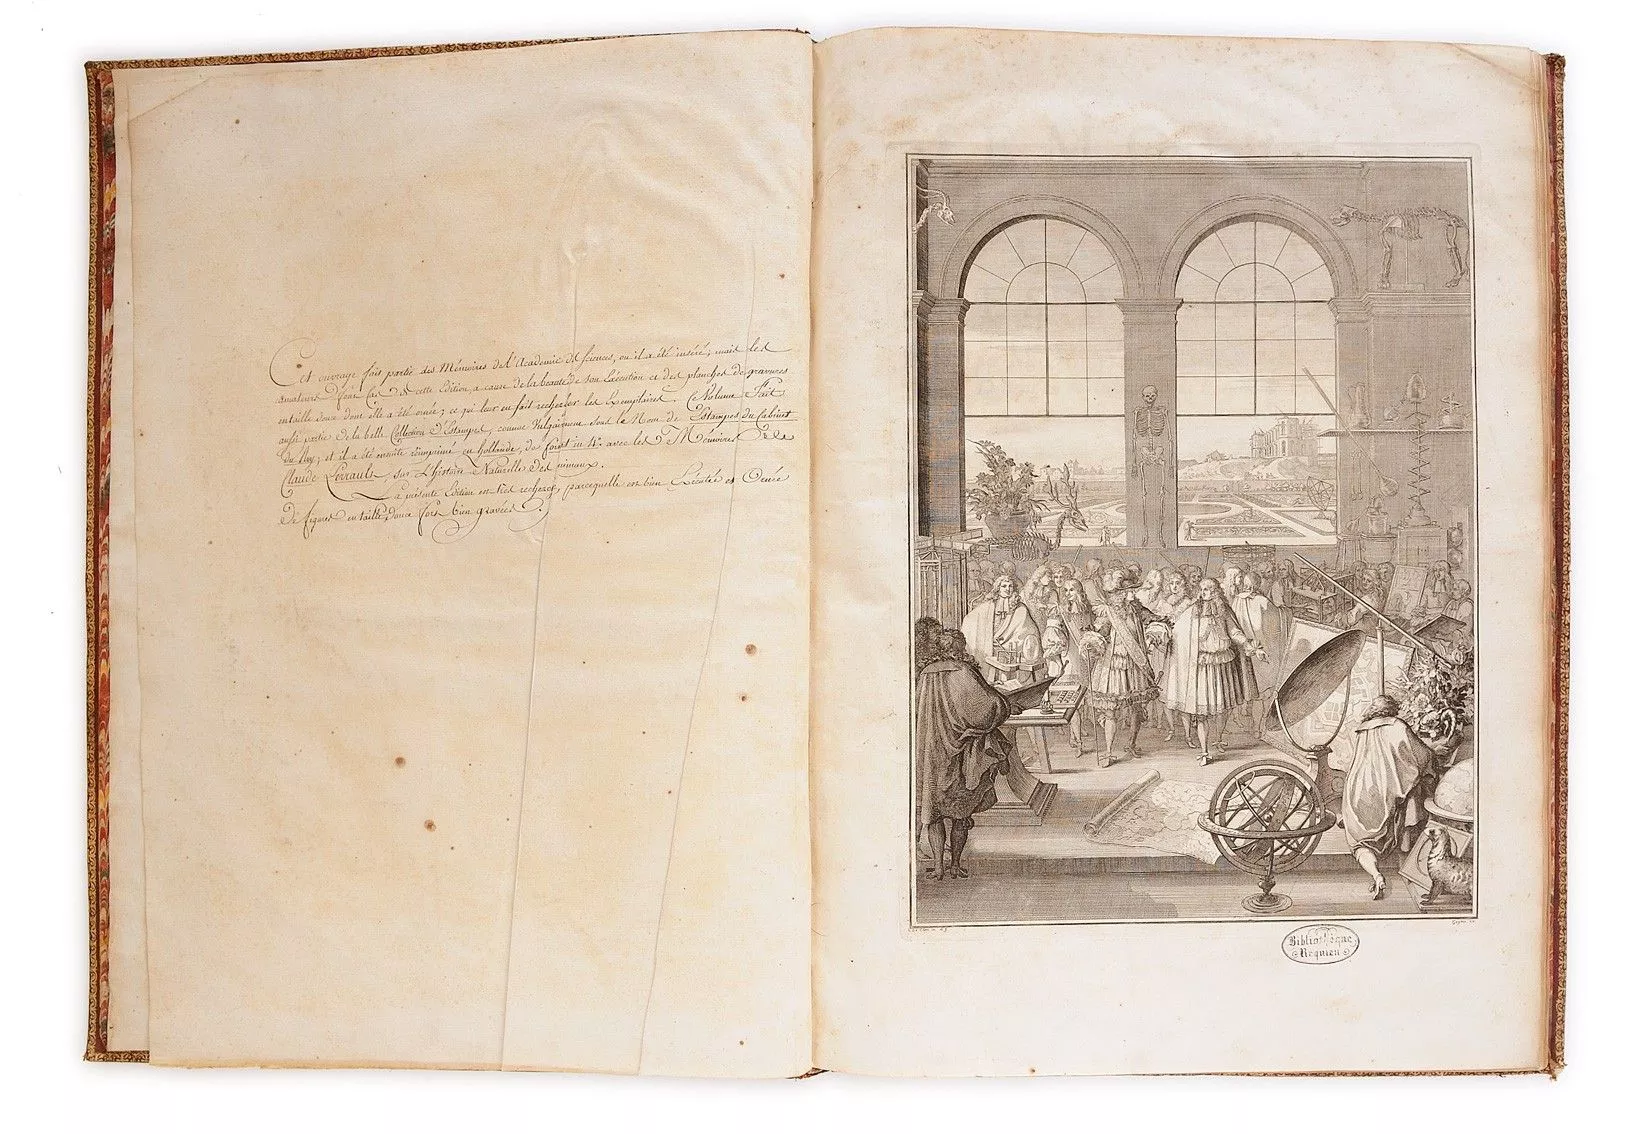 Cet ouvrage fait partie des Mémoires de l'Academie des sciences, ou il a été inséré; mais les
amateurs font cas de cette Edition a cause de la beauté de son Exécution et des planches de gravures
entaille douce dont elle a été ornée; ce qui leur en fait rechercher les Exemplaires. Ce Volume Fait
aussi partie de la belle Collection d'Estampes, connue Vulgairement sous le Nom de Estampes du Cabinet
du Roy; et il a été ensuite réimprimé en hollande, de format in 4° avec les Mémoires de
Claude Perrault, sur L'histoire Naturelle des animaux.
La présente Edition est très recherchée, parcequelle est bien Exécutée et Ornée
De figures entaille douce fort bien gravées.
Bibliothèque
Requien